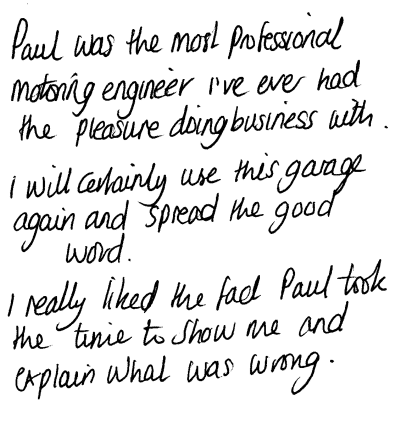 Paul was the most professional
motoring engineer i've ever had
the pleasure doing business with.
i will certainly use this garage
again and spread the good
word.
I really liked the fact Paul took
the time to show me and
explain what was wrong.